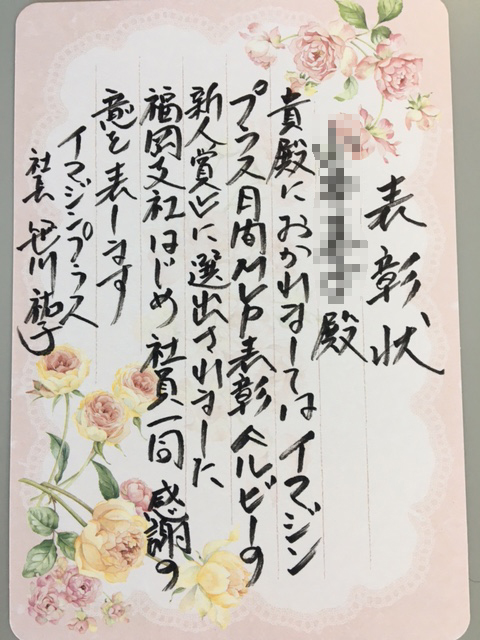 表彰状
殿
貴殿におかれましてはイマジン
プラス月間MVP表彰ルビーの
新人賞に選出されました
福岡支社はじめ社員一同感謝の
意を表します
イマジンプラス
社長 笹川祐子